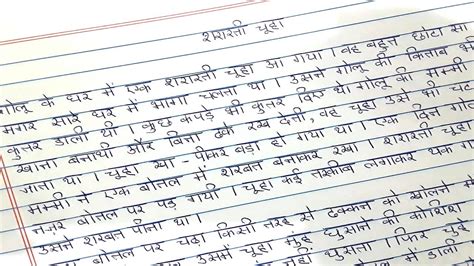 शरारती चूहा
गोलू के घर में एक शरारती चूहा आ गया। वह बहुत छोटा सा
मगर सारे घर में भागा चलता था। उसने गोलू की किताब की
कुतर डाली थी। कुछ कपड़े भी कुतर दिए थे। गोलू की मम्मी
खाना बनाती और बिना ढके रख देती, वह चूहा उसे भी चट
जाता था। चूहा खा-पीकर बड़ा हो गया था। एक
मम्मी ने एक बोतल में शरबत बनाकर रखा। शरारती चूहे
नज़र बोतल पर पड़ गयी। चूहा कई तरकीब लगाकर थक
उसने शरबत पीना था।
बोतल पर चढ़ा किसी तरह से ढक्कन को खोलने में
उसमें चूहा मुंह घुसाने की कोशिश
घुसता। फिर चूहे